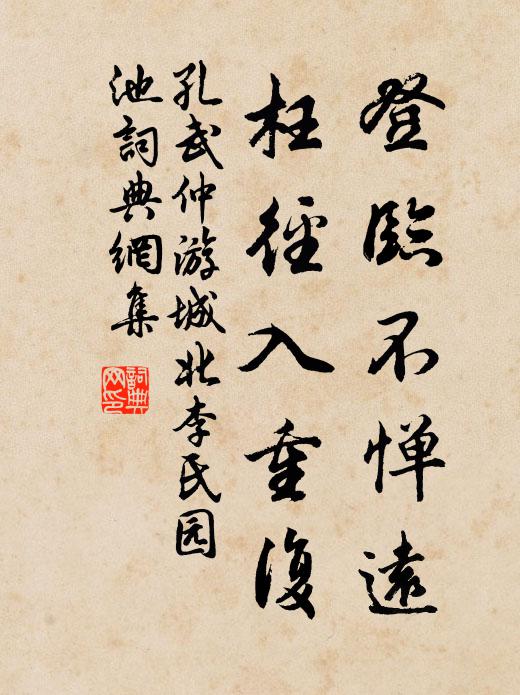 登臨不惮遠
枉徑入重復
孔武仲游城北李氏园
池詞典網集
詞典
网印